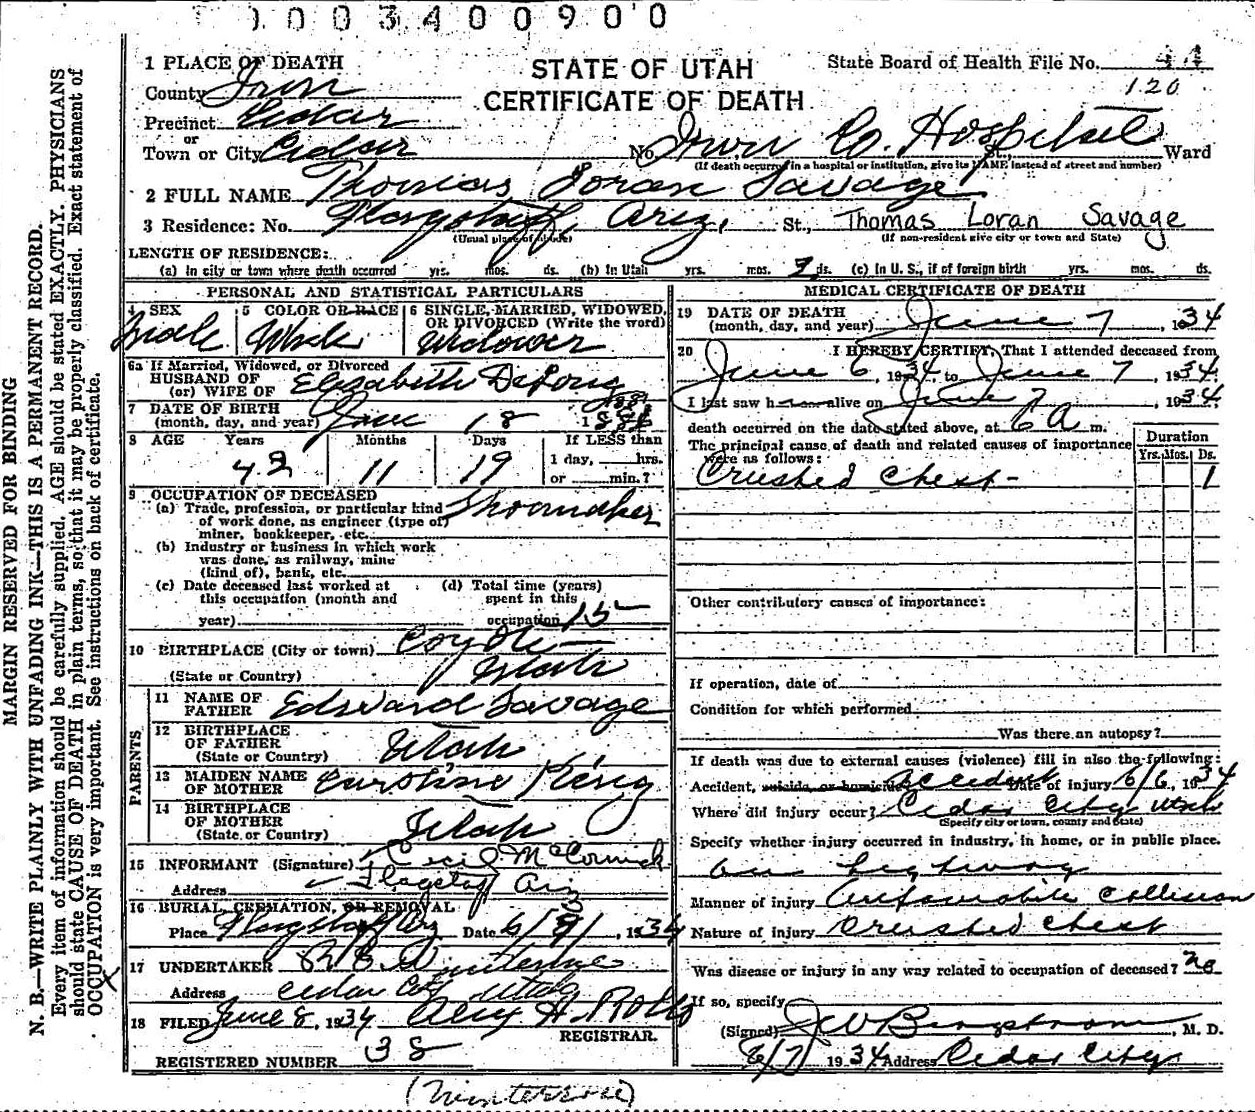 1003400900
1 PLACE OF DEATH
STATE OF UTAH
CERTIFICATE OF DEATH
State Board of Health File No. 44
120
County Iron
Precinct Cedar
or
Town or City Cedar No. Iron Co. Hospital St., Ward
(If death occurred in a hospital or institution, give its NAME instead of street and number)
2 FULL NAME Thomas Loran Savage
3 Residence: No. Flagstaff, Ariz, St., Thomas Loran Savage
(Usual place of abode) (If non-resident give city or town and State)
LENGTH OF RESIDENCE:
(a) In city or town where death occurred yrs. mos. ds. (b) In Utah yrs. mos. ds. (c) In U. S., if of foreign birth yrs. mos. ds.
PERSONAL AND STATISTICAL PARTICULARS
4 SEX 5 COLOR OR RACE 6 SINGLE, MARRIED, WIDOWED, OR DIVORCED (Write the word)
Male White Widower
6a If Married, Widowed, or Divorced
HUSBAND OF
(or) WIFE OF Elizabeth
7 DATE OF BIRTH
(month, day, and year) June 18
8 AGE Years Months Days If LESS than
1 day, hrs.
or min.?
42 11 19
9 OCCUPATION OF DECEASED
(a) Trade, profession, or particular kind of work done, as engineer (type of) miner, bookkeeper, etc. Shoemaker
(b) Industry or business in which work was done, as railway, mine (kind of), bank, etc.
(c) Date deceased last worked at this occupation (month and year)
(d) Total time (years) spent in this occupation 15
10 BIRTHPLACE (City or town) Coyote
(State or Country) Utah
PARENTS
11 NAME OF FATHER Edward Savage
12 BIRTHPLACE OF FATHER
(State or Country) Utah
13 MAIDEN NAME OF MOTHER Caroline King
14 BIRTHPLACE OF MOTHER
(State or Country) Utah
15 INFORMANT (Signature) Cecil McCormick
Address Flagstaff Ariz
16 BURIAL, CREMATION, OR REMOVAL
Place Flagstaff Ariz Date 6/9/, 1934
17 UNDERTAKER
Address Cedar City Utah
18 FILED June 8, 1934
REGISTRAR.
REGISTERED NUMBER 38
MEDICAL CERTIFICATE OF DEATH
19 DATE OF DEATH
(month, day, and year) June 7, 1934
20 I HEREBY CERTIFY, That I attended deceased from
June 6, 1934, to June 7, 1934.
I last saw h alive on June 7, 1934.
death occurred on the date stated above, at 6 A m.
The principal cause of death and related causes of importance
were as follows:
Duration
Yrs. Mos. Ds.
Crushed Chest- 1
Other contributory causes of importance:
If operation, date of
Condition for which performed
Was there an autopsy?
If death was due to external causes (violence) fill in also the following:
Accident, suicide, or homicide Accident Date of injury 6/6, 1934
Where did injury occur? Cedar City Utah
(Specify city or town, county and State)
Specify whether injury occurred in industry, in home, or in public place.
on highway
Manner of injury Automobile Collision
Nature of injury Crushed Chest
Was disease or injury in any way related to occupation of deceased? no
If so, specify
(Signed) J W Bergstrom, M. D.
6/7/ 1934 Address Cedar City
(Winterrose)
MARGIN RESERVED FOR BINDING
N. B.—WRITE PLAINLY WITH UNFADING INK—THIS IS A PERMANENT RECORD.
Every item of information should be carefully supplied. AGE should be stated EXACTLY. PHYSICIANS
should state CAUSE OF DEATH in plain terms, so that it may be properly classified. Exact statement of
OCCUPATION is very important. See instructions on back of certificate.